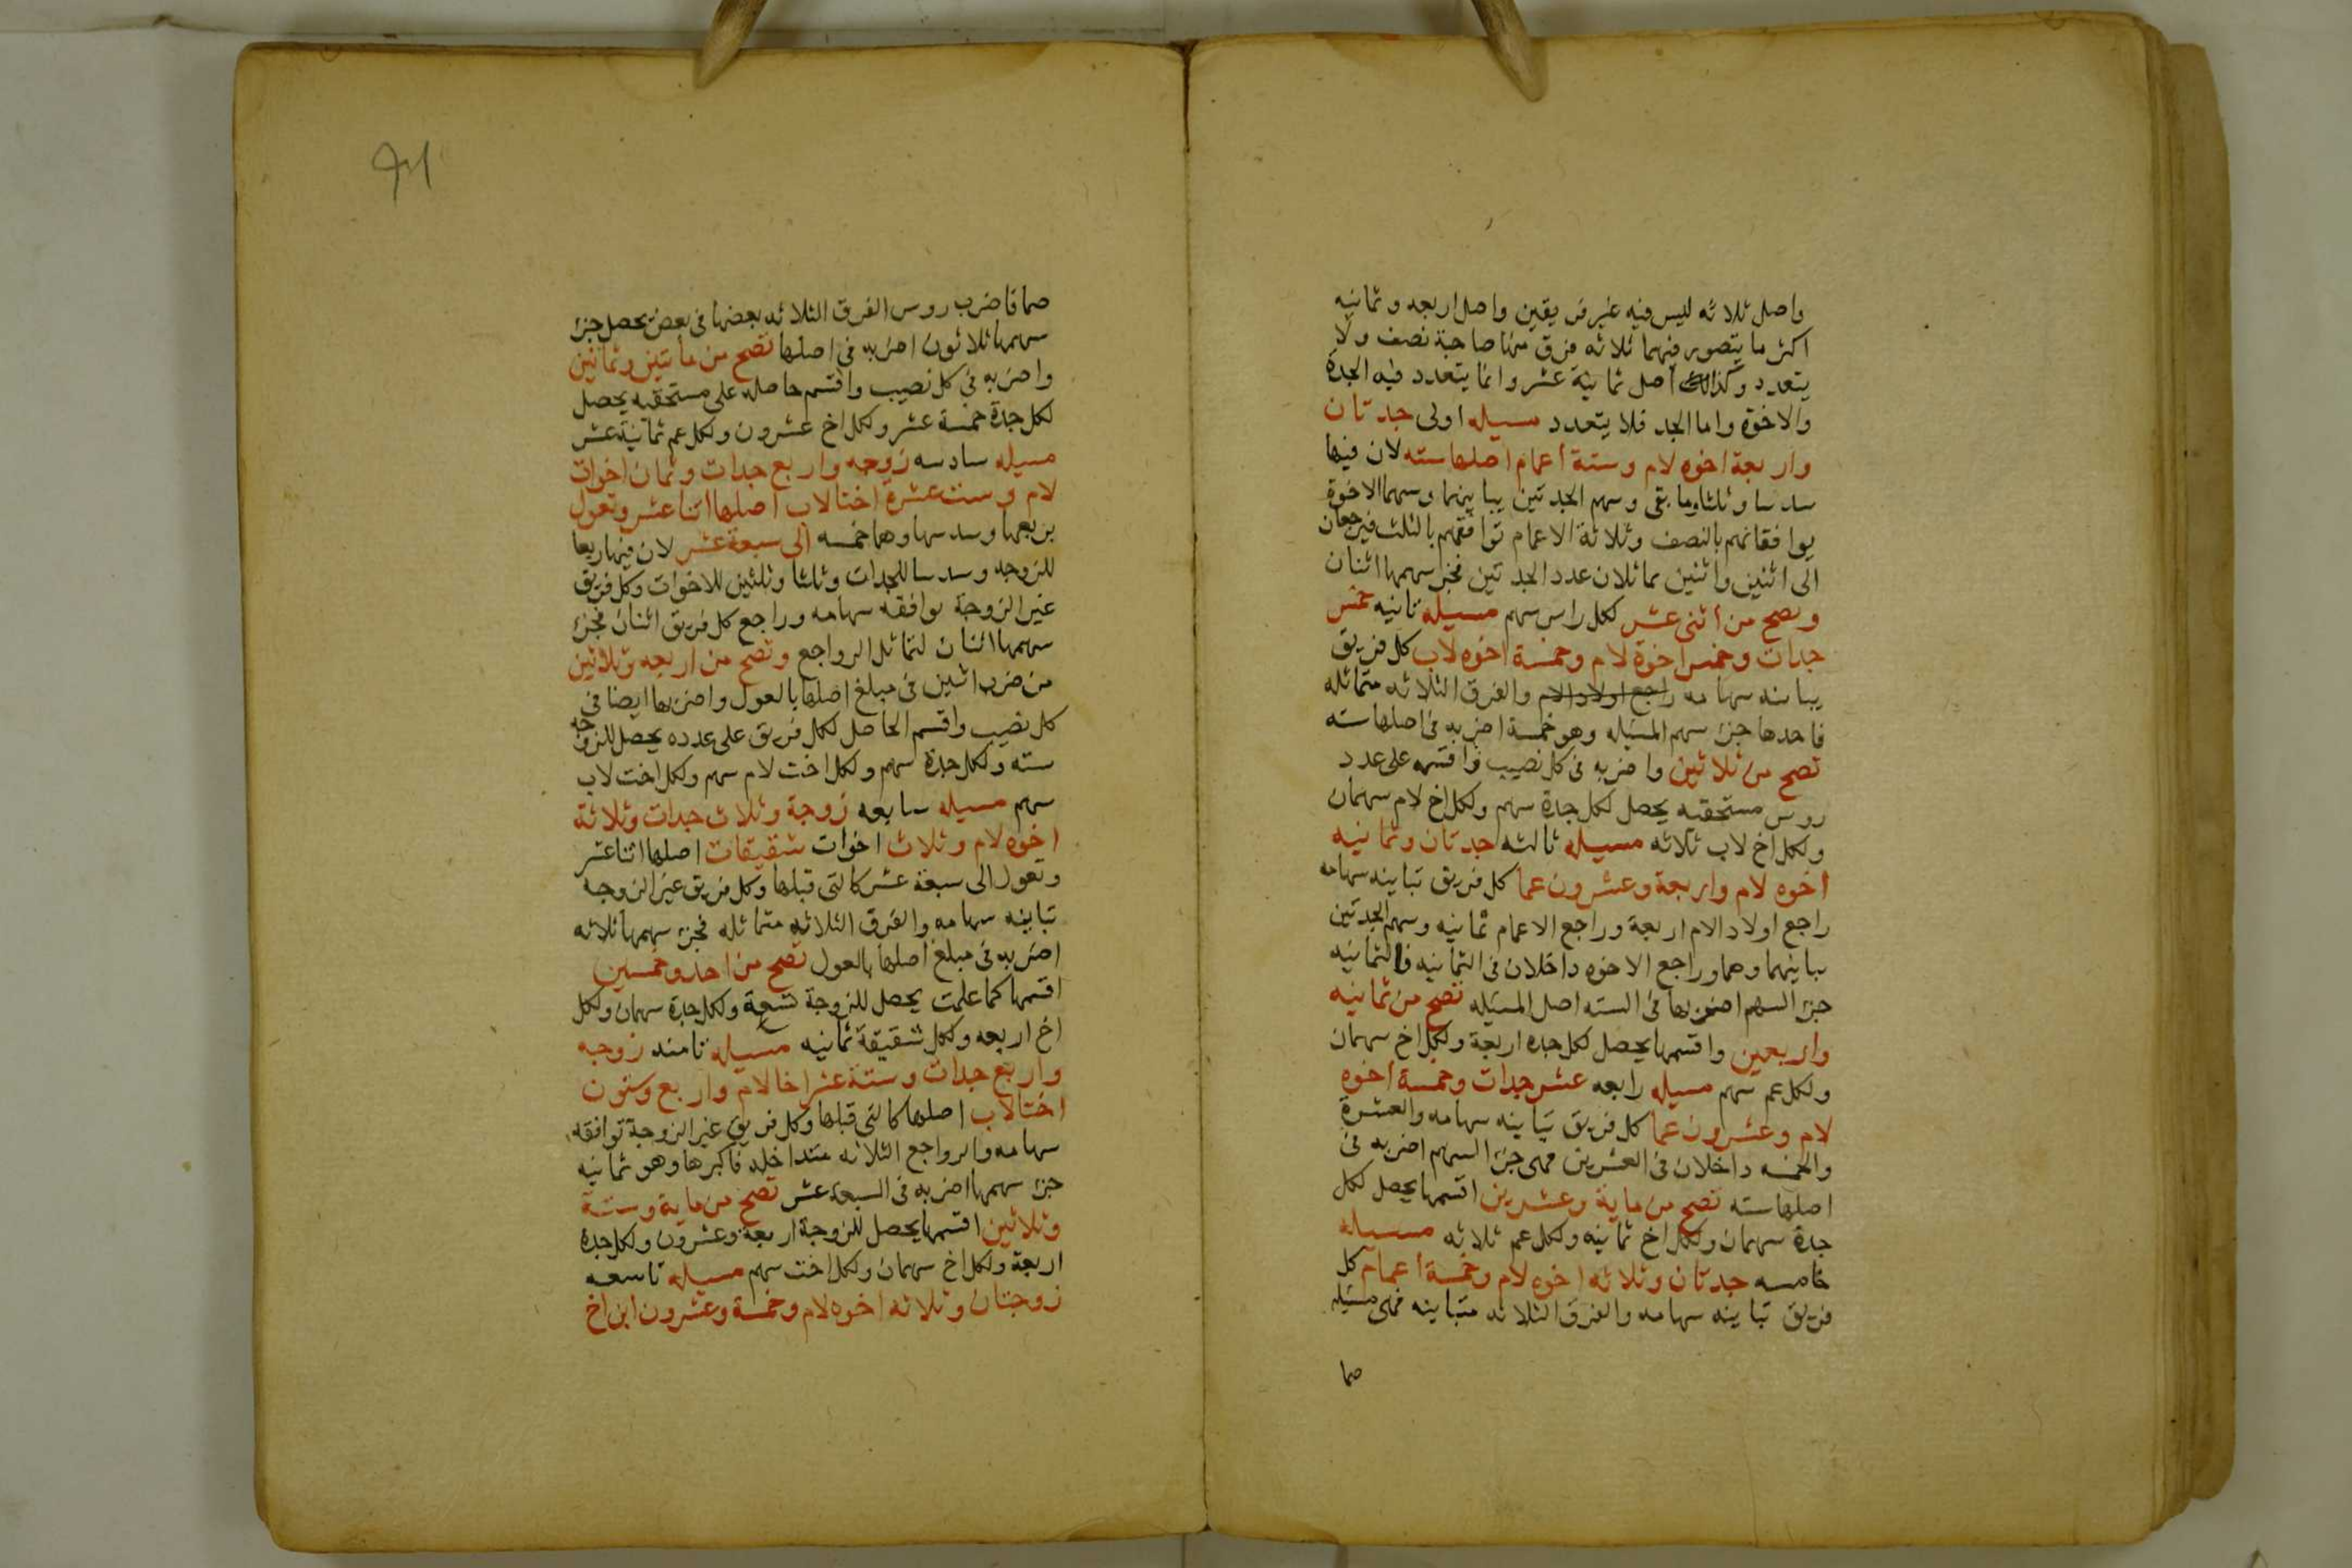 واصل ثلاثه ليس فيه غير فريقين واصل اربعه وثمانيه
اكثر ما يتصور فيهما ثلاثه فرق منها صاحبة نصف ولا
يتعدد وكذالك اصل ثمانية عشر وانما يتعدد فيه الجدة
والاخوة واما الجد فلا يتعدد مسيله اولى جدتان
واربعة اخوه لام وستة أعمام اصلها سته لان فيها
سدسا وثلثا وما بقى وسهم الجدتين يباينهما وسهما الاخوة
يوافقانهم بالنصف وثلاثة الاعمام توافقهم بالثلث فيرجعان
الى اثنين واثنين مماثلان عدد الجدتين فجزء سهمها اثنان
وتصح من أثنى عشر لكل راس سهم مسيله ثانيه خمس
جدات وخمس اخوة لام وخمسة اخوه لاب كل فريق
يباينه سهامه راجع اولاد الام والفرق الثلاثه متماثله
فاحدها جزء سهم المسيله وهو خمسة اضربه فى اصلها سته
تصح من ثلاثين واضربه فى كل نصيب واقسمه على عدد
روس مستحقيه يحصل لكل جدة سهم ولكل اخ لام سهمان
ولكل اخ لاب ثلاثه مسيله ثالثه جدتان وثمانيه
اخوه لام واربعة وعشرون عما كل فريق تباينه سهامه
راجع اولاد الام اربعة وراجع الاعمام ثمانيه وسهم الجدتين
يباينهما وهما وراجع الاخوه داخلان فى الثمانيه فالثمانيه
جزء السهم اضربها فى السته اصل المسيله تصح من ثمانيه
واربعين واقسمها يحصل لكل جده اربعة ولكل اخ سهمان
ولكل عم سهم مسيله رابعه عشر جدات وخمسة اخوه
لام وعشرون عما كل فريق تباينه سهامه والعشرة
والخمسه داخلان فى العشرين فهى جزء السهم اضربه فى
اصلها سته تصح من ماية وعشرين اقسمها يحصل لكل
جدة سهمان ولكل اخ ثمانيه ولكل عم ثلاثه مسيله
خامسه جدتان وثلاثه اخوه لام وخمسة أعمام كل
فريق تباينه سهامه والفرق الثلاثه متباينه فهى مسيله
صما
صما فاضرب روس الفرق الثلاثه بعضها فى بعض يحصل جزء
سهمها ثلاثون اضربه فى اصلها تصح من مايتين وثمانين
واضربه فى كل نصيب واقسم حاصله على مستحقيه يحصل
لكل جدة خمسة عشر ولكل اخ عشرون ولكل عم ثمانية عشر
مسيله سادسه زوجه واربع جدات وثمان اخوات
لام وست عشرة اختا لاب اصلها اثنا عشر وتعول
بربعها وسدسها وهما خمسه الى سبعة عشر لان فيها ربعا
للزوجه وسدسا للجدات وثلثا وثلثين للاخوات وكل فريق
غير الزوجة توافقه سهامه وراجع كل فريق اثنان فجزء
سهمها اثنان لتماثل الرواجع وتصح من اربعه وثلاثين
من ضرب اثنين فى مبلغ اصلها بالعول واضربها ايضا فى
كل نصيب واقسم الحاصل لكل فريق على عدده يحصل للزوجه
سته ولكل جدة سهم ولكل اخت لام سهم ولكل اخت لاب
سهم مسيله سابعه زوجة وثلاث جدات وثلاثة
اخوه لام وثلاث اخوات شقيقات اصلها اثنا عشر
وتعول الى سبعة عشر كالتى قبلها وكل فريق غير الزوجه
تباينه سهامه والفرق الثلاثه متماثله فجزء سهمها ثلاثه
اضربه فى مبلغ اصلها بالعول تصح من احد وخمسين
اقسمها كما علمت يحصل للزوجة تسعة ولكل جدة سهمان ولكل
اخ اربعه ولكل شقيقة ثمانيه مسيله ثامنه زوجه
واربع جدات وستة عشر اخا لام واربع وستون
اختا لاب اصلها كالتى قبلها وكل فريق غير الزوجة توافقه
سهامه والرواجع الثلاثه متداخله فاكبرها وهو ثمانيه
جزء سهمها اضربه فى السبعة عشر تصح من ماية وستة
وثلاثين اقسمها يحصل للزوجة اربعة وعشرون ولكل جدة
اربعة ولكل اخ سهمان ولكل اخت سهم مسيله تاسعه
زوجتان وثلاثه اخوه لام وخمسة وعشرون ابن اخ